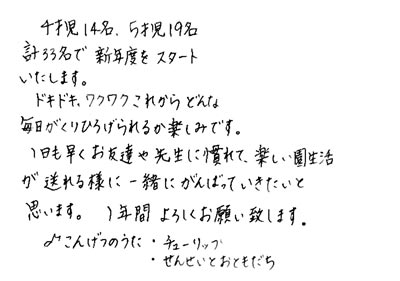 4才児14名、5才児19名
計33名で新年度をスタート
いたします。
ドキドキ、ワクワクこれからどんな
毎日がくりひろげられるか楽しみです。
1日も早くお友達や先生に慣れて、楽しい園生活
が送れる様に一緒にがんばっていきたいと
思います。1年間よろしくお願い致します。
♪こんげつのうた・チューリップ
・せんせいとおともだち